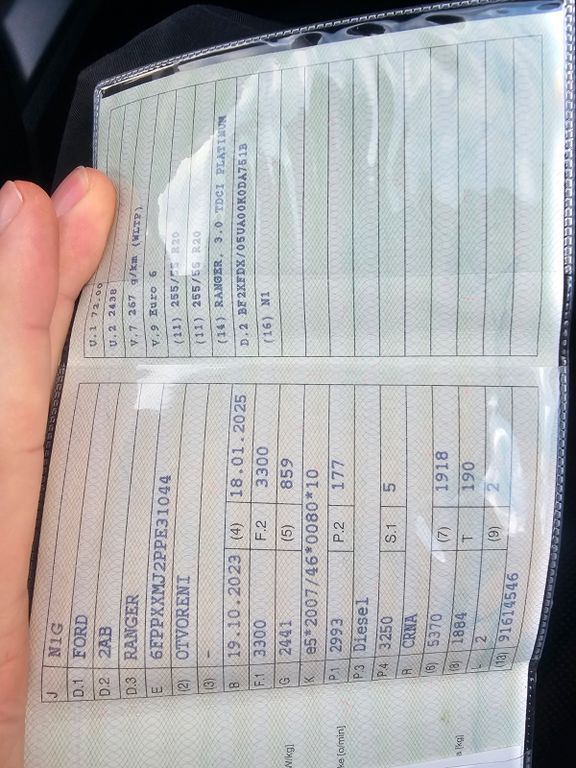 J N1G
D.1 FORD
D.2 2AB
D.3 RANGER
E 6FPPXXMJ2PPE31044
(2) OTVORENI
(3) -
B 19.10.2023 (4) 18.01.2025
F.1 3300 F.2 3300
G 2441 (5) 859
K e5*2007/46*0080*10
P.1 2993 P.2 177
P.3 Diesel
P.4 3250 S.1 5
R CRNA
(6) 5370 (7) 1918
(8) 1884 T 190
L 2 (9) 2
(13) 91614546
U.1 72.00
U.2 2438
V.7 267 g/km (WLTP)
V.9 Euro 6
(11) 255/55 R20
(11) 255/55 R20
(14) RANGER, 3.0 TDCI PLATINUM
D.2 BF2XFDX/05UA00K0DA751B
(16) N1